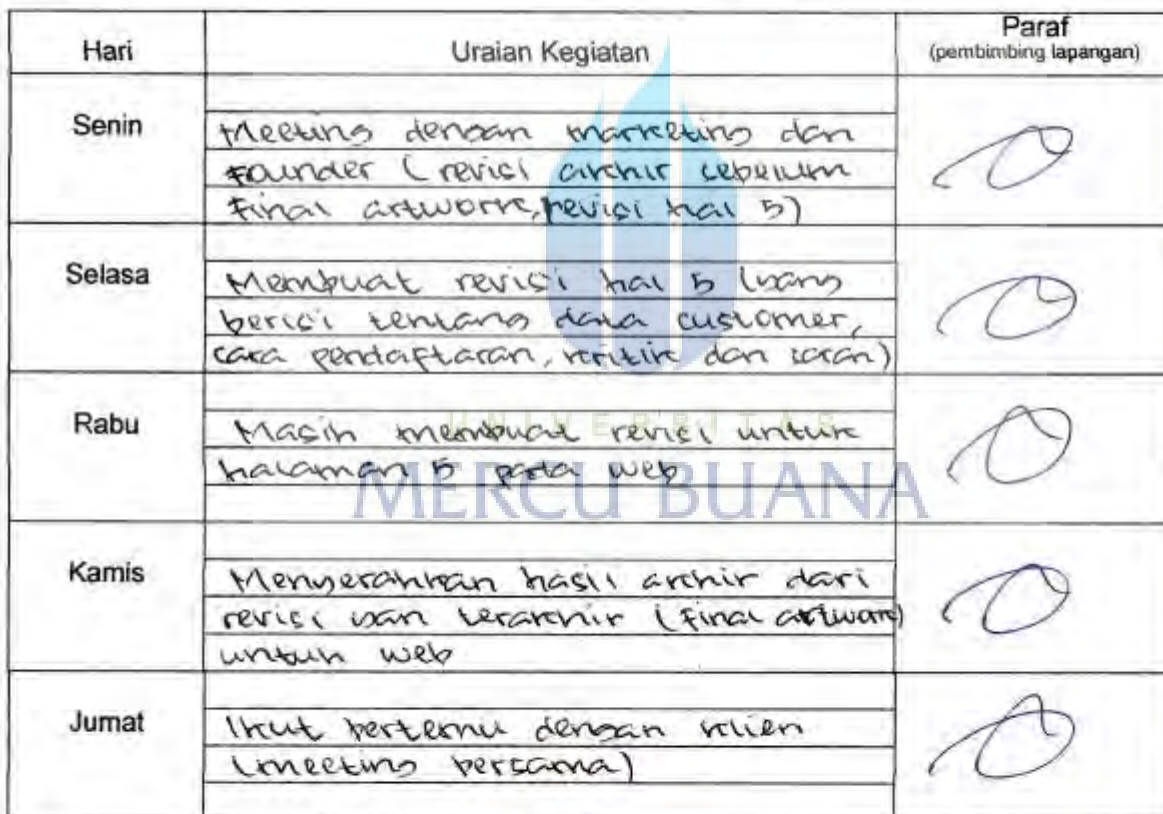 Hari Uraian Kegiatan Paraf
(pembimbing lapangan)
Senin
Meeting dengan marketing dan
Founder (revisi akhir sebelum
Final artwork, revisi hal 5)
Selasa
Membuat revisi hal 5 (yang
berisi tentang data customer,
cara pendaftaran, kritik dan saran)
Rabu
Masih membuat revisi untuk
halaman 5 pada web
UNIVERSITAS
MERCU BUANA
Kamis
Menyerahkan hasil akhir dari
revisi yan terakhir (final artwork)
untuk web
Jumat
Ikut bertemu dengan klien
(meeting bersama)